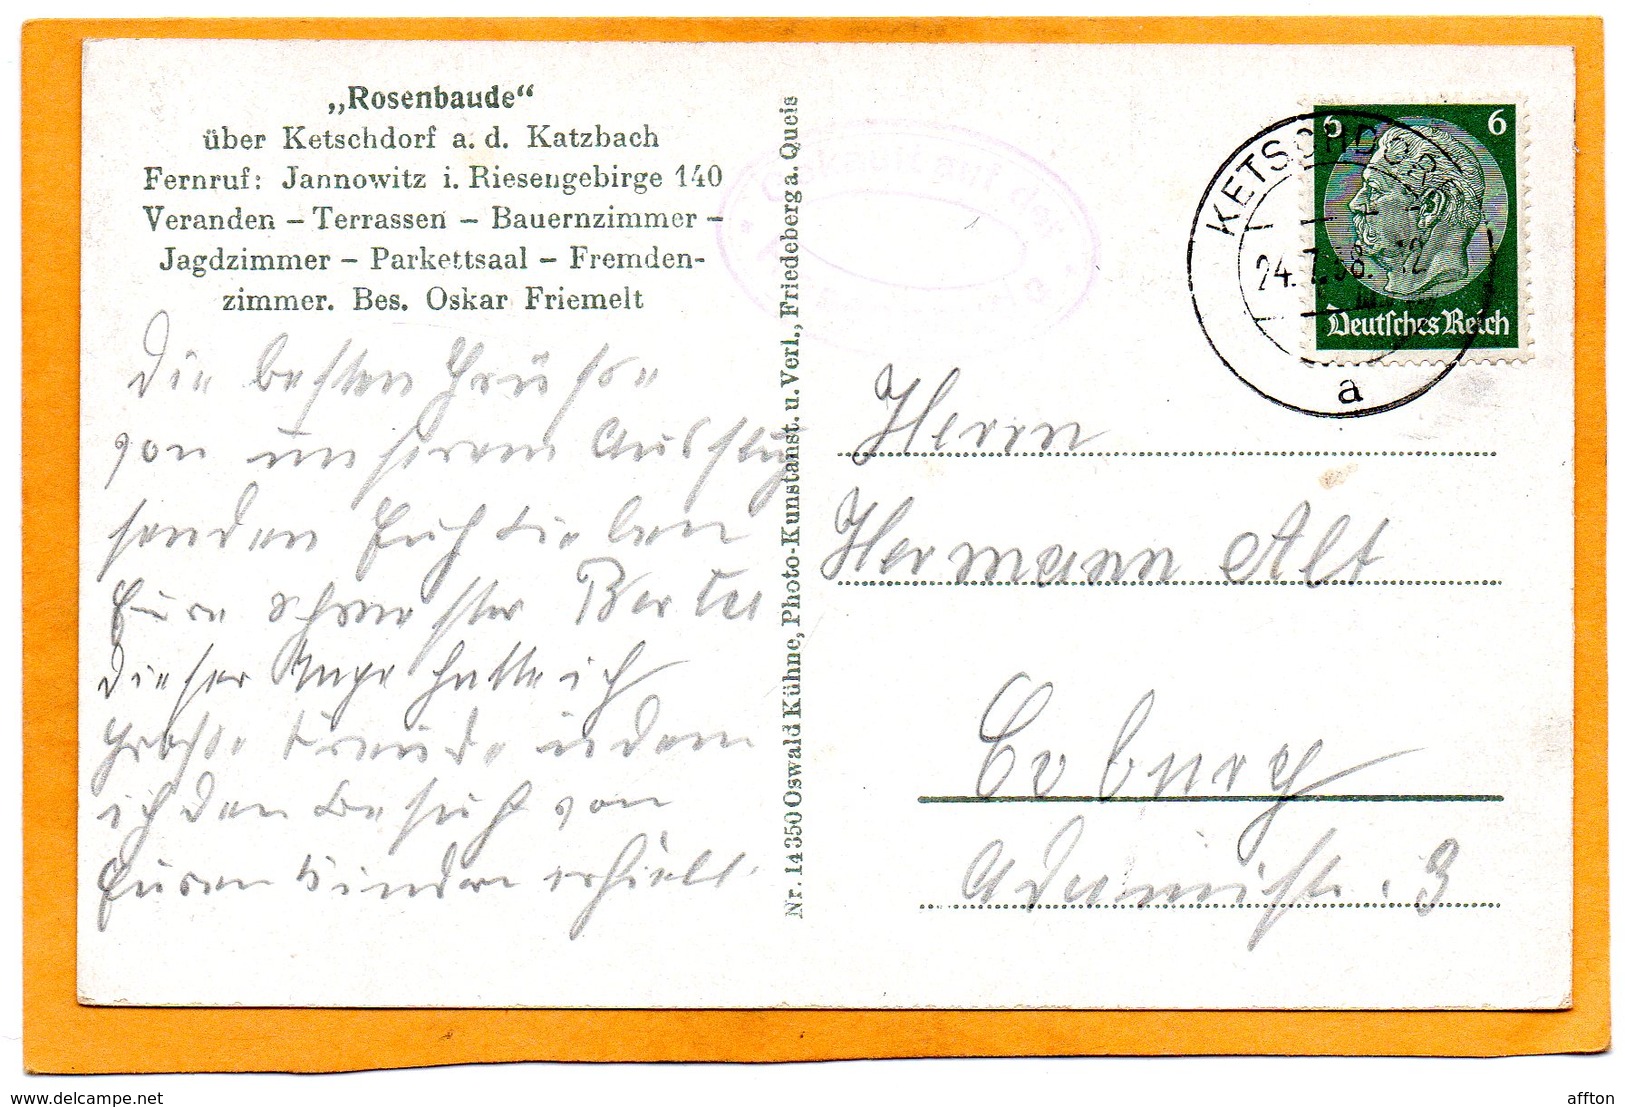 „Rosenbaude“
über Ketschdorf a. d. Katzbach
Fernruf: Jannowitz i. Riesengebirge 140
Veranden – Terrassen – Bauernzimmer –
Jagdzimmer – Parkettsaal – Fremden-
zimmer. Bes. Oskar Friemelt
Die besten Grüße
von unserem Ausflug
senden Euch die lieben
Eure Schwester
dieser Tage hatte ich
große Freude indem
ich den Besuch von
Euren Kindern erhielt.
Nr. 14350 Oswald Kühne, Photo-Kunstanst. u. Verl., Friedeberg a. Queis
KETSCHDORF
24.7.38. 12
a
6 6
Deutsches Reich
Herrn
Hermann Alt
Coburg
Adamistr. 3
www.delcampe.net
affton